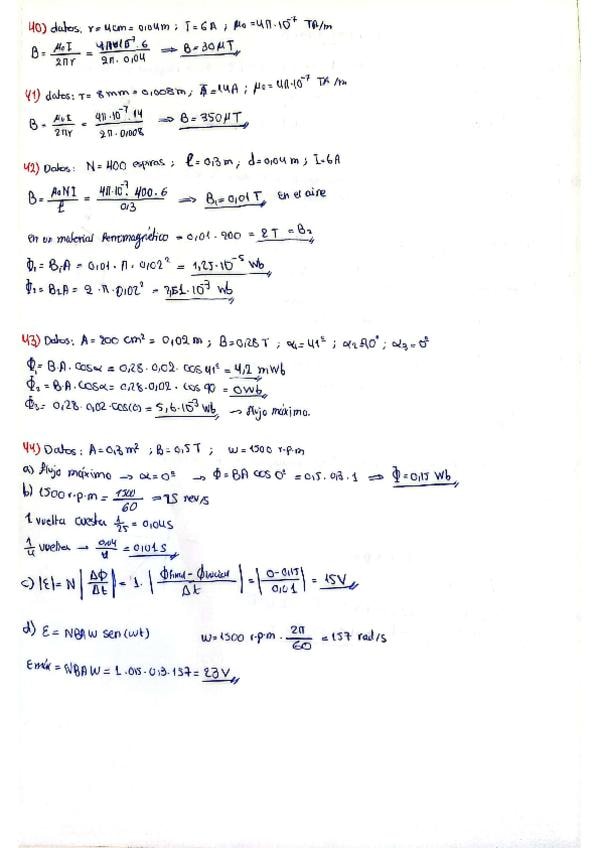 40) datos: r = 4cm = 0,04m ; I = 6A ; μ₀ = 4π·10⁻⁷ Tm/A
B = μ₀I / 2πr = 4π·10⁻⁷·6 / 2π·0,04 ⇒ B = 30μT
41) datos: r = 8mm = 0,008m ; I = 14A ; μ₀ = 4π·10⁻⁷ Tm/A
B = μ₀I / 2πr = 4π·10⁻⁷·14 / 2π·0,008 ⇒ B = 350μT
42) Datos: N = 400 espiras ; ℓ = 0,3m ; d = 0,04m ; I = 6A
B = μ₀NI / ℓ = 4π·10⁻⁷·400·6 / 0,3 ⇒ B₁ = 0,01T En el aire
En un material ferromagnético = 0,01·200 = 2T = B₂
Φ₁ = B₁A = 0,01·π·0,02² = 1,25·10⁻⁵ Wb
Φ₂ = B₂A = 2·π·0,02² = 2,51·10⁻³ Wb
43) Datos: A = 200 cm² = 0,02m ; B = 0,28T ; α₁ = 41º ; α₂ 90º ; α₃ = 0º
Φ₁ = B·A·cosα = 0,28·0,02·cos 41º = 4,2 mWb
Φ₂ = B·A·cosα = 0,28·0,02·cos 90 = 0Wb
Φ₃ = 0,28·0,02·cos(0) = 5,6·10⁻³ Wb → flujo máximo.
44) Datos: A = 0,3m² ; B = 0,5T ; w = 1500 r.p.m
a) flujo máximo → α = 0º → Φ = BA cos 0º = 0,5·0,3·1 ⇒ Φ = 0,15 Wb
b) 1500 r.p.m = 1500 / 60 = 25 rev/s
1 vuelta cuesta 1/25 = 0,04s
1/4 vueltas → 0,04 / 4 = 0,01s
c) |ε| = N |ΔΦ / Δt| = 1·|Φfinal - Φinicial / Δt| = |0 - 0,15 / 0,01| = 15V
d) ε = NBAW sen(wt) w = 1500 r.p.m · 2π / 60 = 157 rad/s
εmáx = NBAW = 1·0,5·0,3·157 = 23V